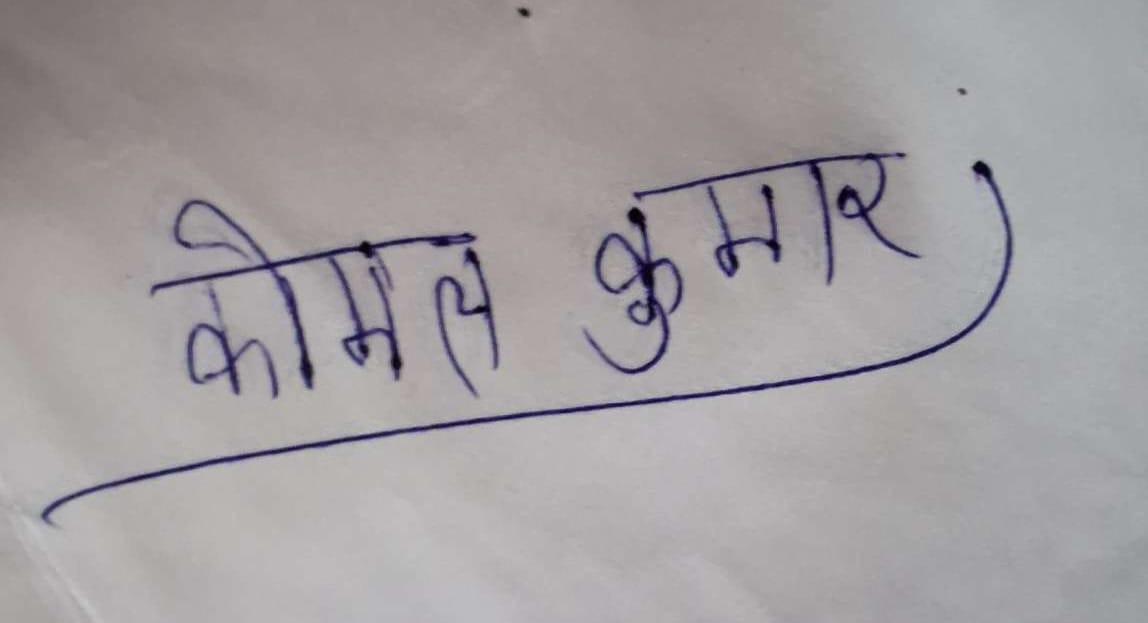 कोमल कुमार